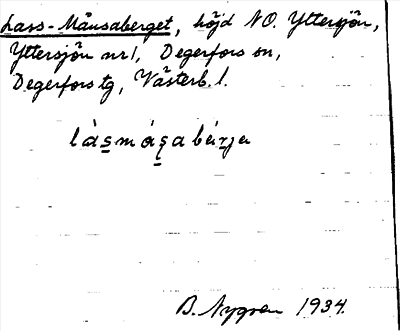 Lass-Månsaberget, höjd NO. Yttersjön,
Yttersjön nr 1, Degerfors sn,
Degerfors tg, Västerb. l.
B. Nygren 1934.